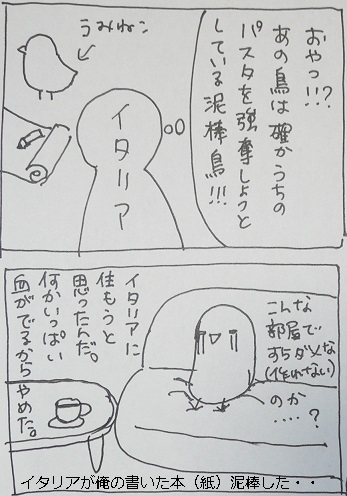 おやっ!!?
あの鳥は確かうちの
パスタを強奪しようと
している泥棒鳥!!!
うみねこ
イタリア
こんな
部屋で
すらダメな
(作れない)
のか
・・・・?
イタリアに
住もうと
思ったんだ。
何かいっぱい
血がでるから
やめた。
イタリアが俺の書いた本（紙）泥棒した・・